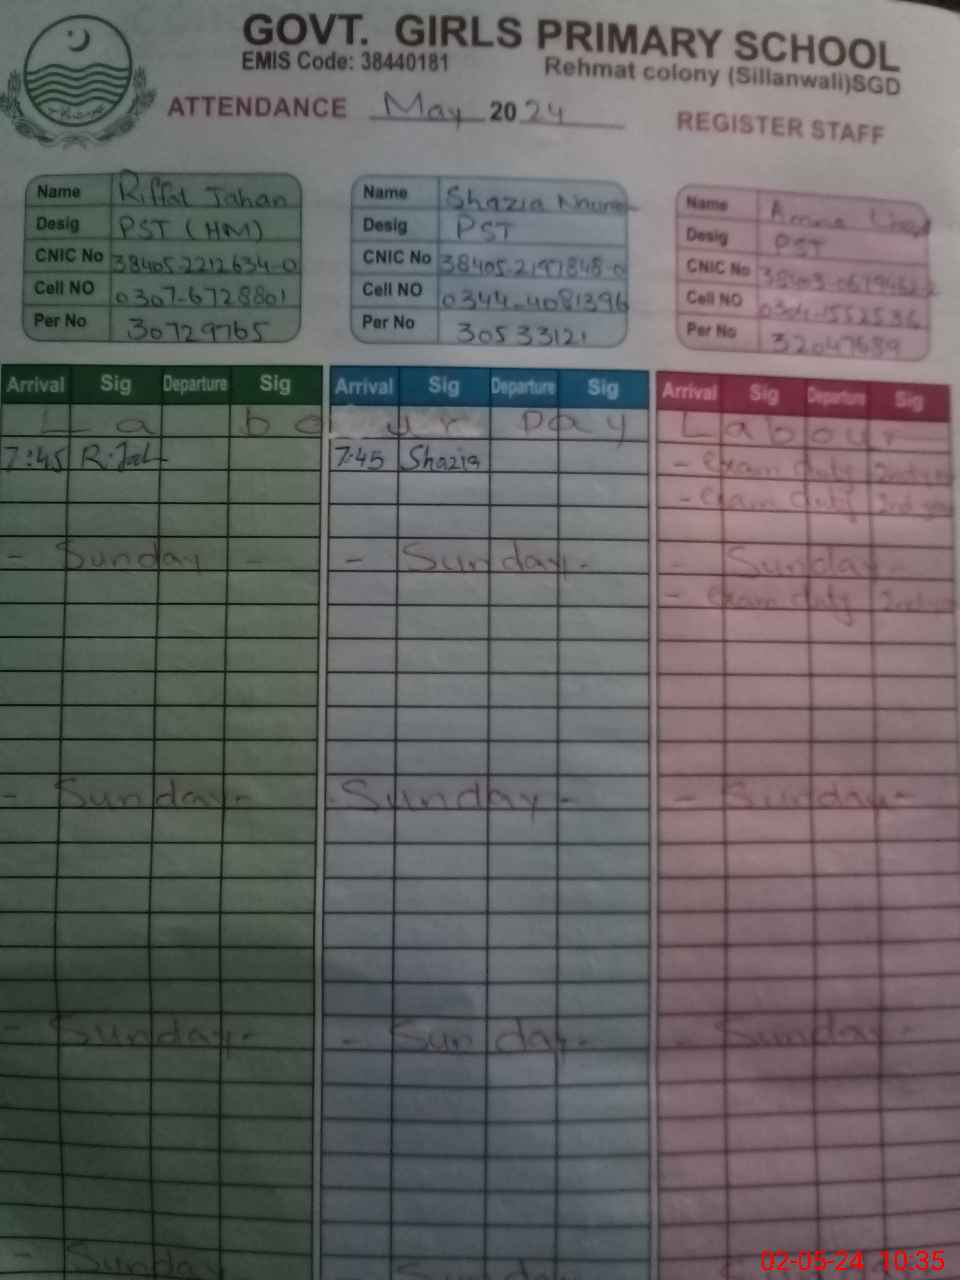 GOVT. GIRLS PRIMARY SCHOOL
EMIS Code: 38440181 Rehmat colony (Sillanwali)SGD
ATTENDANCE May 2024 REGISTER STAFF
Name Riffat Jahan
Desig PST (HM)
CNIC No 38405-2212634-0
Cell NO 0307-6728801
Per No 30729765
Name Shazia
Desig PST
CNIC No 38405-2197848-0
Cell NO 0344-4081396
Per No 30533121
Name Amna
Desig PST
CNIC No
Cell NO 0304-1552536
Per No 32047689
Arrival Sig Departure Sig Arrival Sig Departure Sig Arrival Sig Departure Sig
Labour Day Labour
7:45 R.Jah 7:45 Shazia - exam duty 2nd year
- exam duty 2nd year
- Sunday - - Sunday - - Sunday -
- exam duty 2nd year
- Sunday - - Sunday - - Sunday -
- Sunday - - Sunday - - Sunday -
- Sunda
02-05-24 10:35